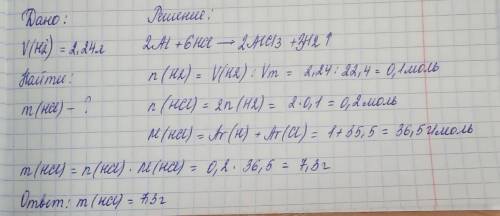 Дано:
Решение:
V(H2) = 2,24л
2Al + 6HCl → 2AlCl3 + 3H2↑
Найти:
n(H2) = V(H2) : Vm = 2,24 : 22,4 = 0,1моль
m(HCl) - ?
n(HCl) = 2n(H2) = 2·0,1 = 0,2моль
M(HCl) = Ar(H) + Ar(Cl) = 1+35,5 = 36,5г/моль
m(HCl) = n(HCl) · M(HCl) = 0,2 · 36,5 = 7,3г
Ответ: m(HCl) = 7,3г